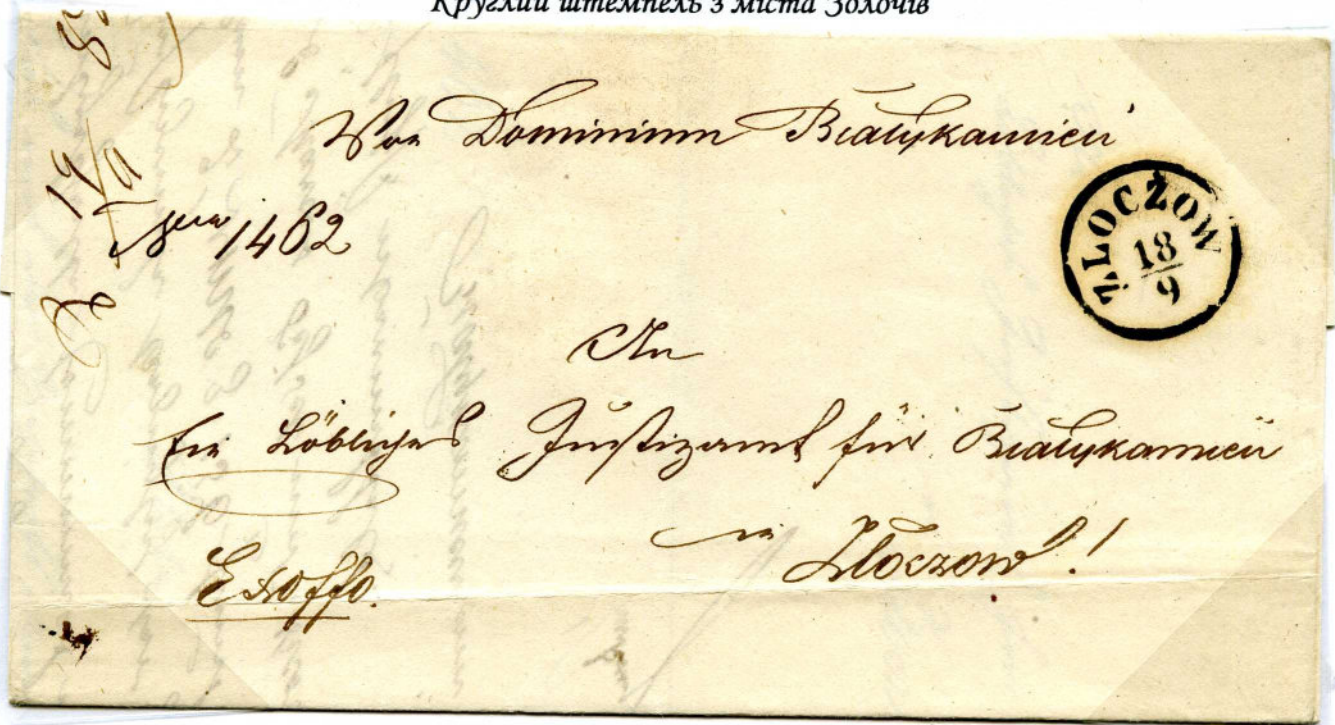 Круглий штемпель з міста Золочів
Von Dominium Białykamień
Nro 1462
ZLOCZOW
18
9
An
Ein Löbliches Justizamt für Białykamień
in Złoczow!
Exoffo.